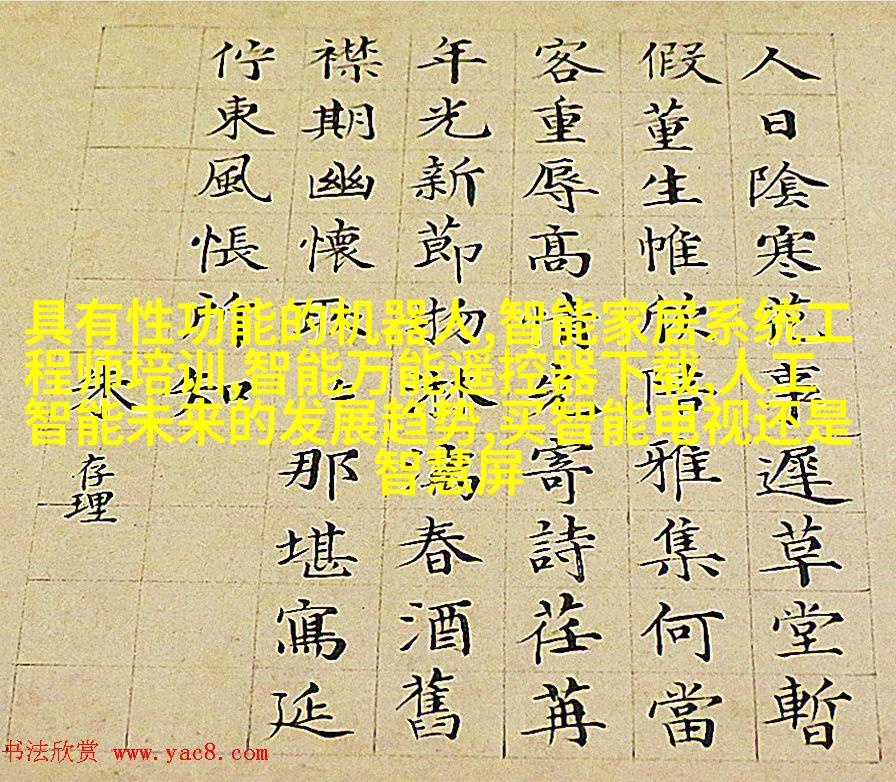 人日陰寒花事遲草堂暫
假董生帷欣陪雅集何當
客重辱高情先寄詩荏苒
年光新節物淋漓春酒舊
襟期幽懷耿〻那堪寫延
佇東風悵所知
朱存理
具有性功能的机器人,智能家居系统工
程师培训,智能万能遥控器下载,人工
智能未来的发展趋势,买智能电视还是
智慧屏
书法欣赏 www.yac8.com